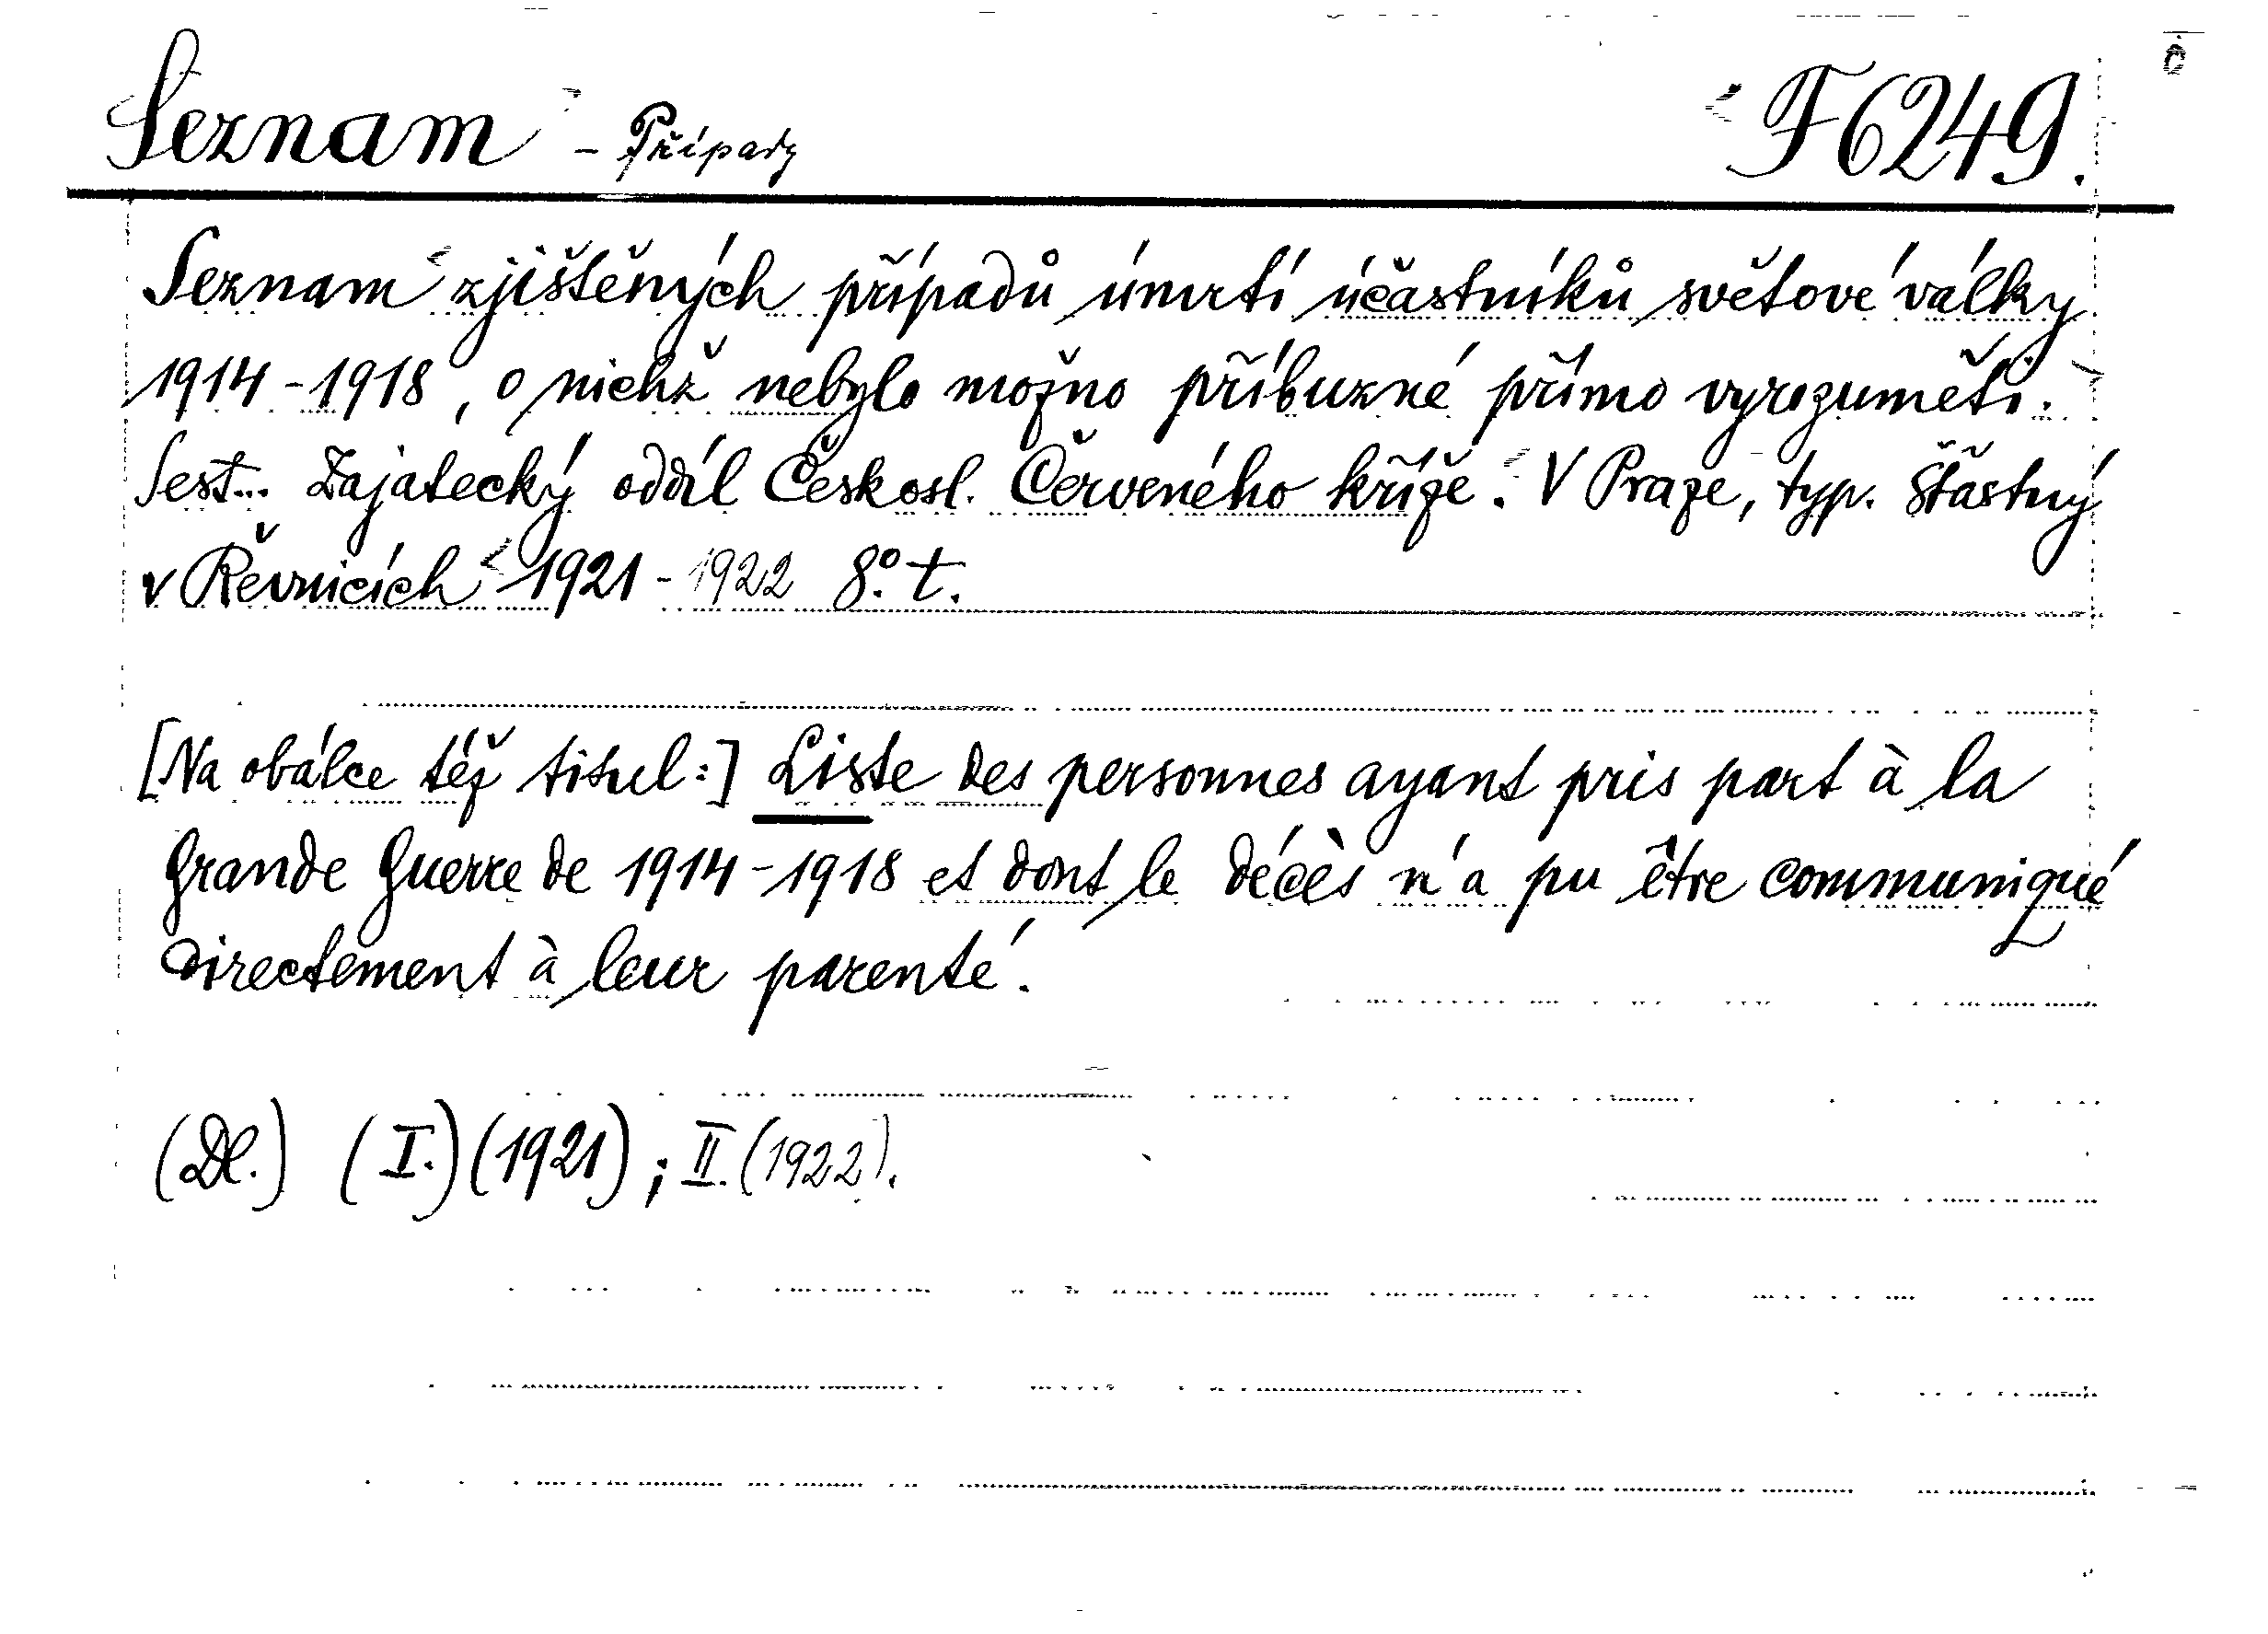 Seznam - Případy F6249.
Seznam zjištěných případů úmrtí účastníků světové války
1914-1918, o nichž nebylo možno příbuzné přímo vyrozuměti.
Sest... Zajatecký oddíl Českosl. Červeného kříže. V Praze, typ. Šťastný
v Řevnicích 1921-1922 8°. t.
[Na obálce též titul:] Liste des personnes ayant pris part à la
Grande Guerre de 1914-1918 et dont le décès n'a pu être communiqué
directement à leur parenté.
(Dl.) (I.) (1921); II. (1922).